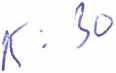 K: 30